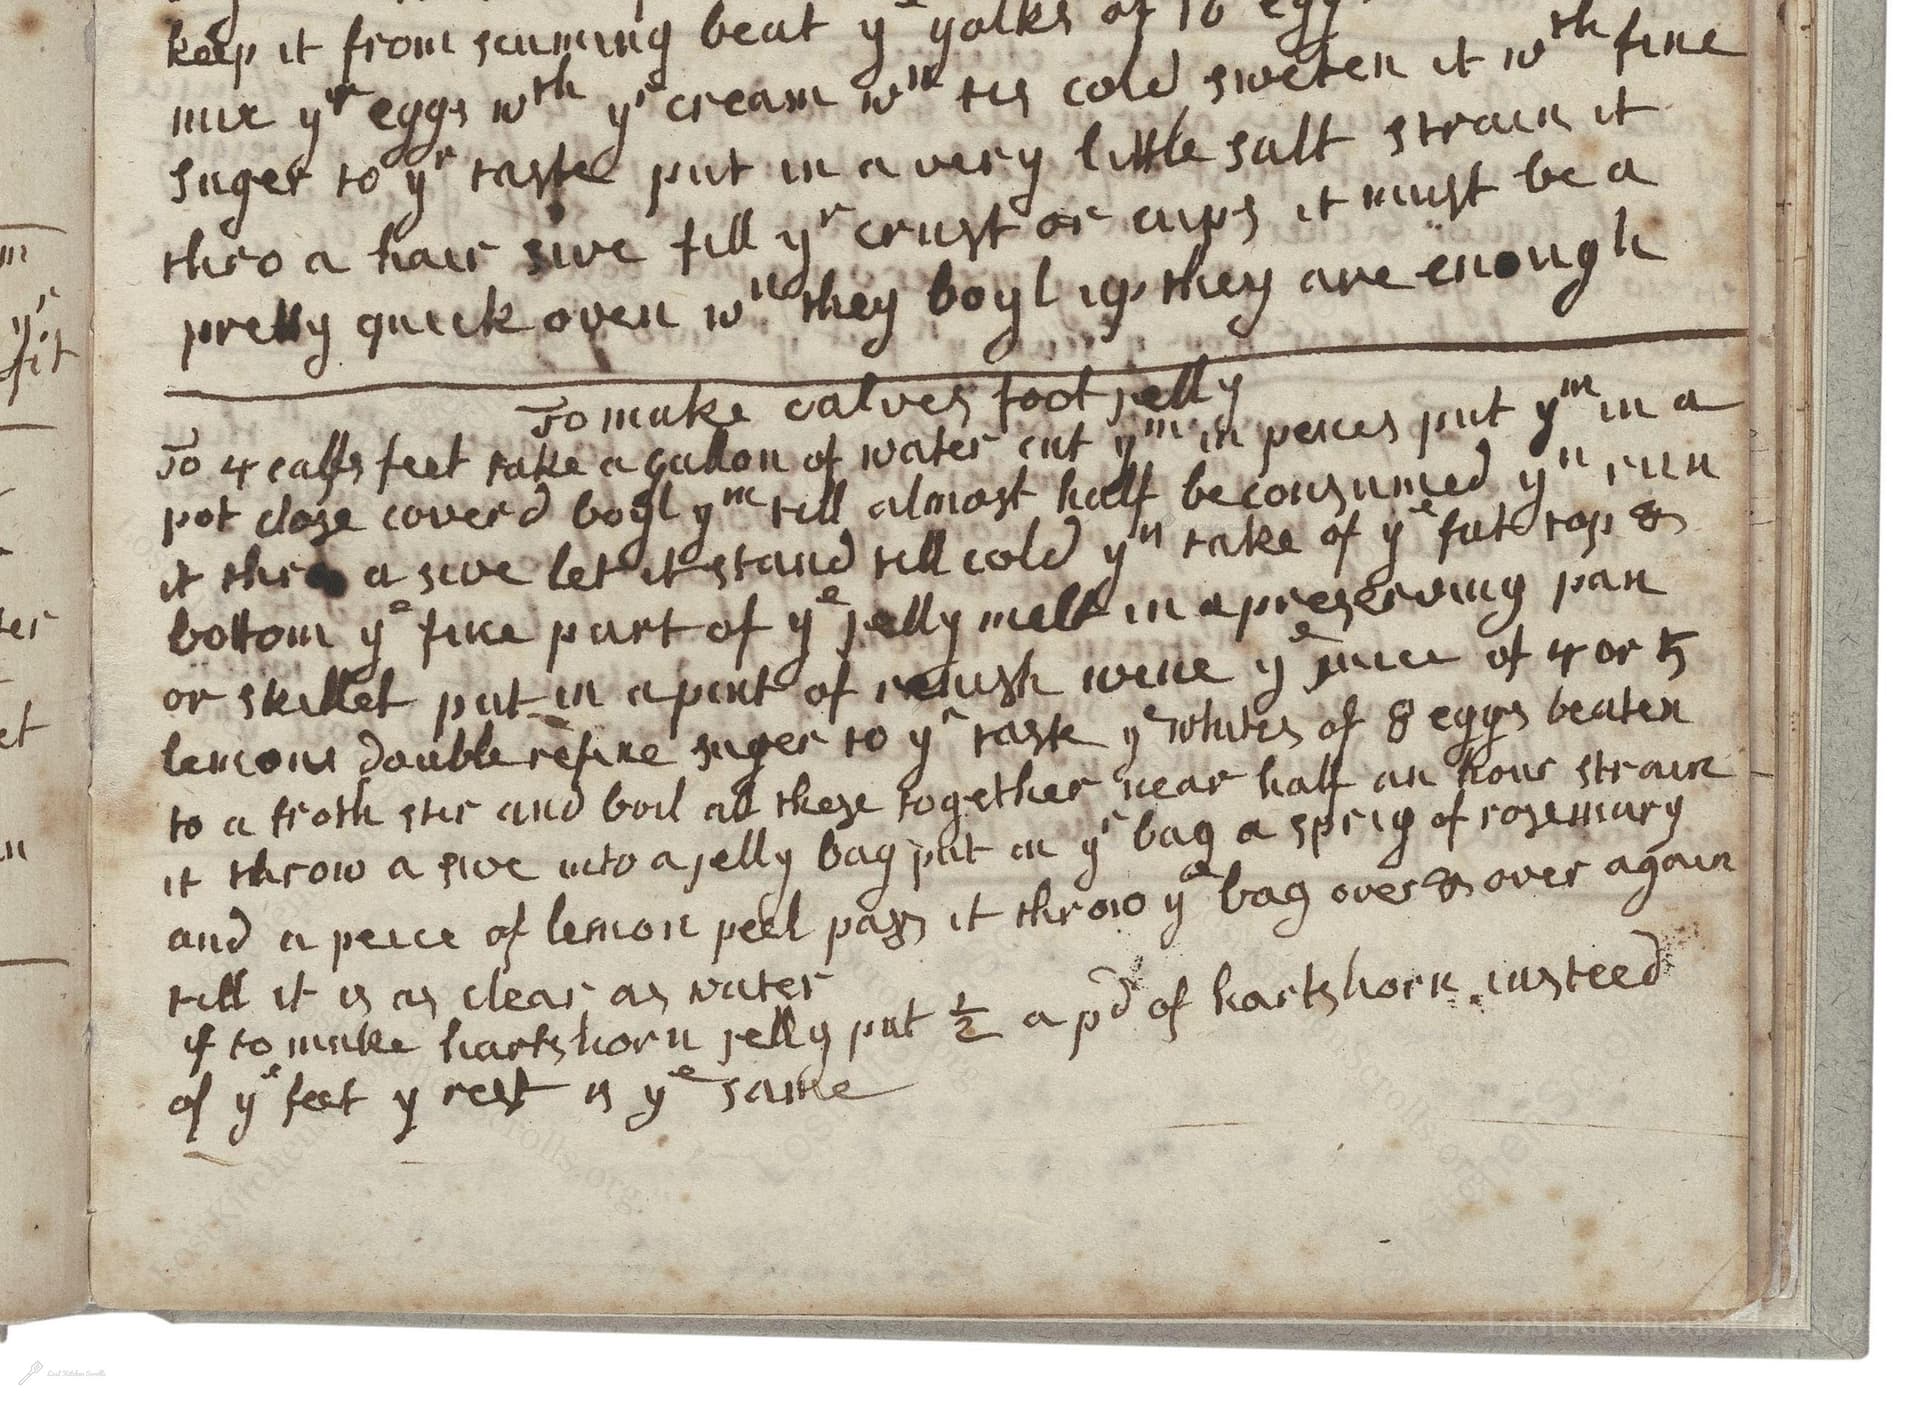 keep it from scuming beat yᵉ yolks of 16
mix yʳ eggs wᵗʰ yᵉ cream wⁿ tis cold sweten it wᵗʰ fine
suger to yʳ taste put in a very little salt strain it
thro a hair sive fill yʳ crust or cups it must be a
pretty quick oven wⁿ they boyl up they are enough
To make calves foot jelly
To 4 calfs feet take a gallon of water cut yᵐ in peices put yᵐ in a
pot close coverd boyl yᵐ till almost half be consumed yⁿ run
it thro a sive let it stand till cold yⁿ take of yᵉ fat top &
bottom yᵉ fine part of yᵉ jelly melt in a preserving pan
or skillet put in a pint of renish wine yᵉ juice of 4 or 5
lemons double refine suger to yʳ taste yᵉ whites of 8 eggs beaten
to a froth stir and boil all these together near half an hour strain
it throw a sive into a jelly bag put in yʳ bag a sprig of rosemary
and a peice of lemon peel pass it throw yᵉ bag over & over again
till it is as clear as water
if to make hartshorn jelly put ½ a pᵈ of hartshorn insteed
of yᵉ feet y rest is yᵉ same
m
yʳ
fit
ter
et
n
Lost Kitchen Scrolls